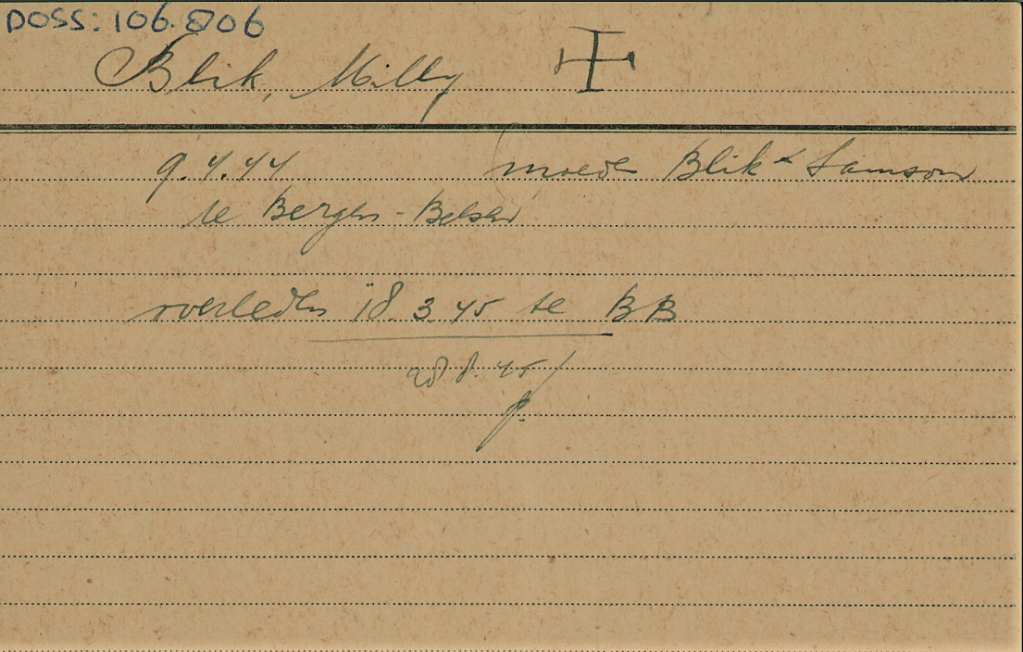 DOSS: 106.806
Blik, Milly
9.4.44 (moeder Blik - Samson
te Bergen-Belsen
overleden 18.3.45 te BB
28 8.45